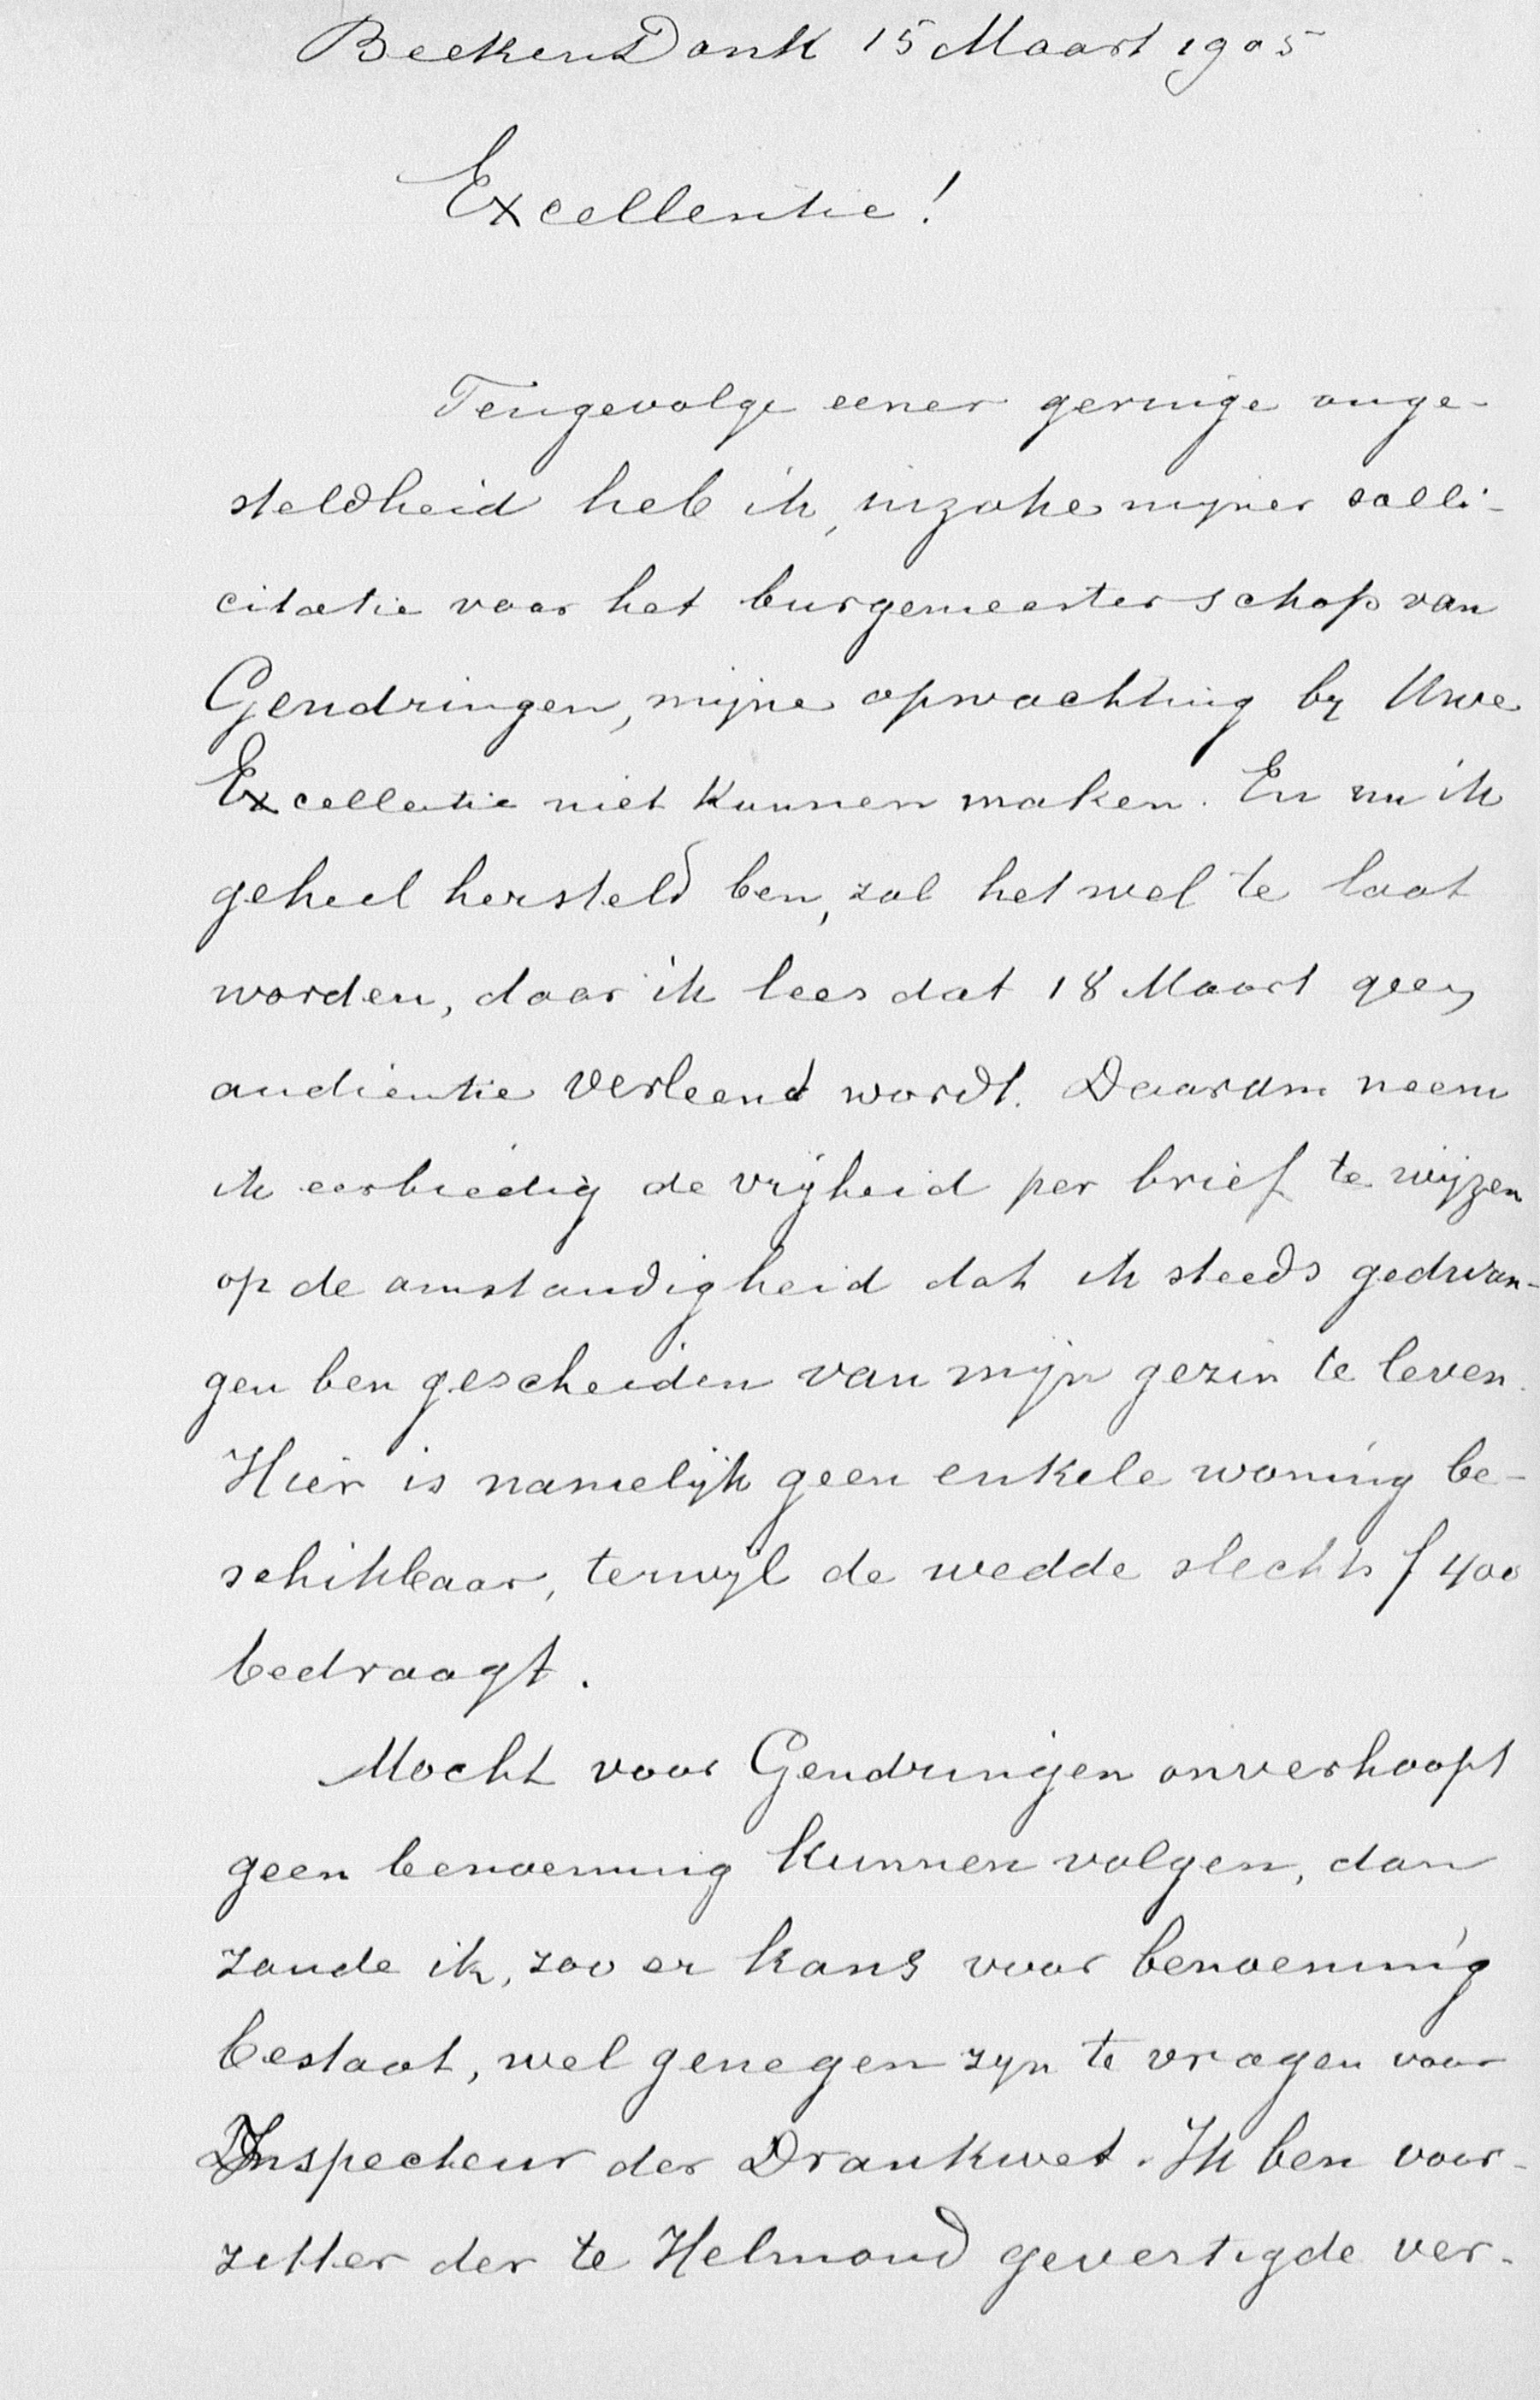 Beek en Donk 15 Maart 1905
Excellentie!
Tengevolge eener geringe onge-
steldheid heb ik, inzake mijner solli-
citatie voor het burgemeesterschap van
Gendringen, mijne opwachting by Uwe
Excellentie niet kunnen maken. En nu ik
geheel hersteld ben, zal het wel te laat
worden, daar ik lees dat 18 Maart geen
audientie verleend wordt. Daarom neem
ik eerbiedig de vrijheid per brief te wijzen
op de omstandigheid dat ik steeds gedwon-
gen ben gescheiden van mijn gezin te leven.
Hier is namelijk geen enkele woning be-
schikbaar, terwijl de wedde slechts f 400
bedraagt.
Mocht voor Gendringen onverhoopt
geen benoeming kunnen volgen, dan
zoude ik, zoo er kans voor benoeming
bestaat, wel genegen zyn te vragen voor
Inspecteur der Drankwet. Ik ben voor-
zitter der te Helmond gevestigde ver-